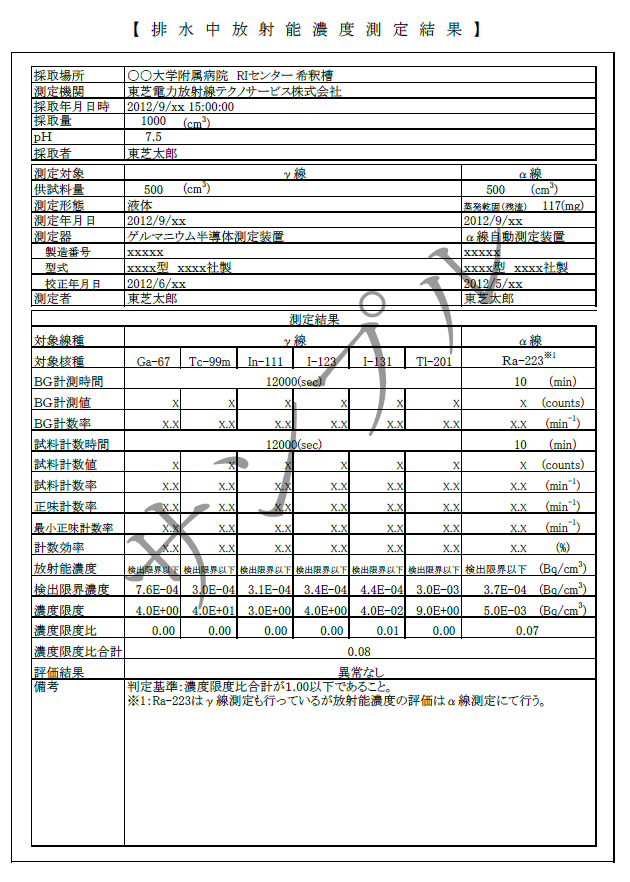 【 排 水 中 放 射 能 濃 度 測 定 結 果 】
採取場所 ○○大学附属病院 RIセンター 希釈槽
測定機関 東芝電力放射線テクノサービス株式会社
採取年月日時 2012/9/xx 15:00:00
採取量 1000 (cm³)
pH 7.5
採取者 東芝太郎
測定対象 γ線 α線
供試料量 500 (cm³) 500 (cm³)
測定形態 液体 蒸発乾固(残渣) 117(mg)
測定年月日 2012/9/xx 2012/9/xx
測定器 ゲルマニウム半導体測定装置 α線自動測定装置
製造番号 xxxxx xxxxx
型式 xxxx型 xxxx社製 xxxx型 xxxx社製
校正年月日 2012/6/xx 2012/5/xx
測定者 東芝太郎 東芝太郎
測定結果
対象線種 γ線 α線
対象核種 Ga-67 Tc-99m In-111 I-123 I-131 Tl-201 Ra-223※1
BG計測時間 12000(sec) 10 (min)
BG計測値 X X X X X X X (counts)
BG計数率 X.X X.X X.X X.X X.X X.X X.X (min⁻¹)
試料計数時間 12000(sec) 10 (min)
試料計数値 X X X X X X X (counts)
試料計数率 X.X X.X X.X X.X X.X X.X X.X (min⁻¹)
正味計数率 X.X X.X X.X X.X X.X X.X X.X (min⁻¹)
最小正味計数率 X.X X.X X.X X.X X.X X.X X.X (min⁻¹)
計数効率 X.X X.X X.X X.X X.X X.X X.X (%)
放射能濃度 検出限界以下 検出限界以下 検出限界以下 検出限界以下 検出限界以下 検出限界以下 検出限界以下 (Bq/cm³)
検出限界濃度 7.6E-04 3.0E-04 3.1E-04 3.4E-04 4.4E-04 3.0E-03 3.7E-04 (Bq/cm³)
濃度限度 4.0E+00 4.0E+01 3.0E+00 4.0E+00 4.0E-02 9.0E+00 5.0E-03 (Bq/cm³)
濃度限度比 0.00 0.00 0.00 0.00 0.01 0.00 0.07
濃度限度比合計 0.08
評価結果 異常なし
備考 判定基準：濃度限度比合計が1.00以下であること。
※1：Ra-223はγ線測定も行っているが放射能濃度の評価はα線測定にて行う。
サンプル